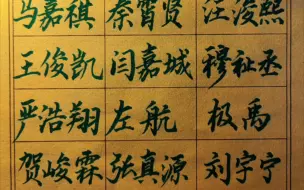 马嘉祺 秦霄贤 汪浚熙
王俊凯 闫嘉城 穆祉丞
严浩翔 左航 极禹
贺峻霖 张真源 刘宇宁